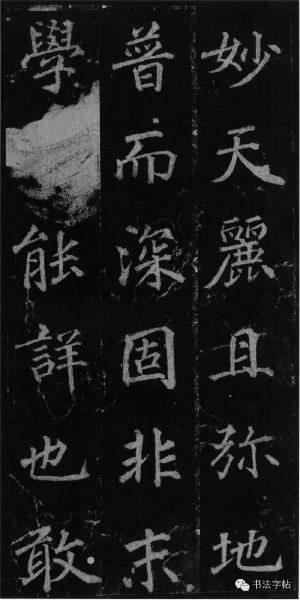 妙天麗且弥地
普而深固非末
學能詳也敢
书法字帖